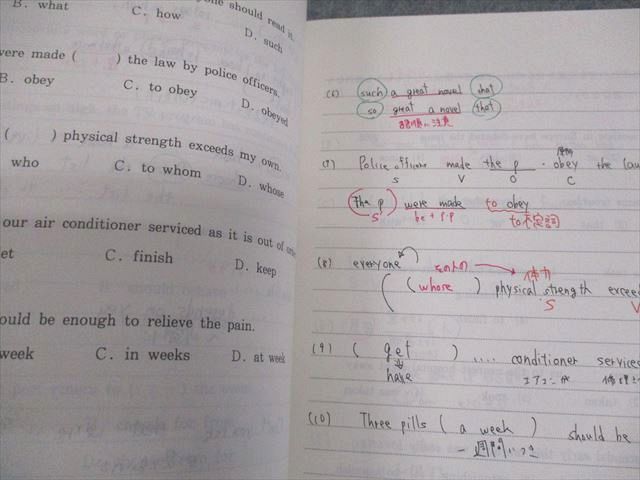 one should read it.
B. what
C. how
D. such
were made ( ) the law by police officers.
B. obey
C. to obey
D. obeyed
( ) physical strength exceeds my own.
who
C. to whom
D. whose
our air conditioner serviced as it is out of
et
C. finish
D. keep
ould be enough to relieve the pain.
week
C. in weeks
D. at week
(6) such a great novel that
so great a novel that
語順に注意
(7) Police officers made the p. obey the law
S V O C
(The p) were made to obey
S be + p.p to不定詞
(8) everyone
その人の 体力
( whose ) physical strength exceed
S V
(9) ( get ) .... conditioner service
have エアコンが
(10) Three pills ( a week ) should be
一週間につき